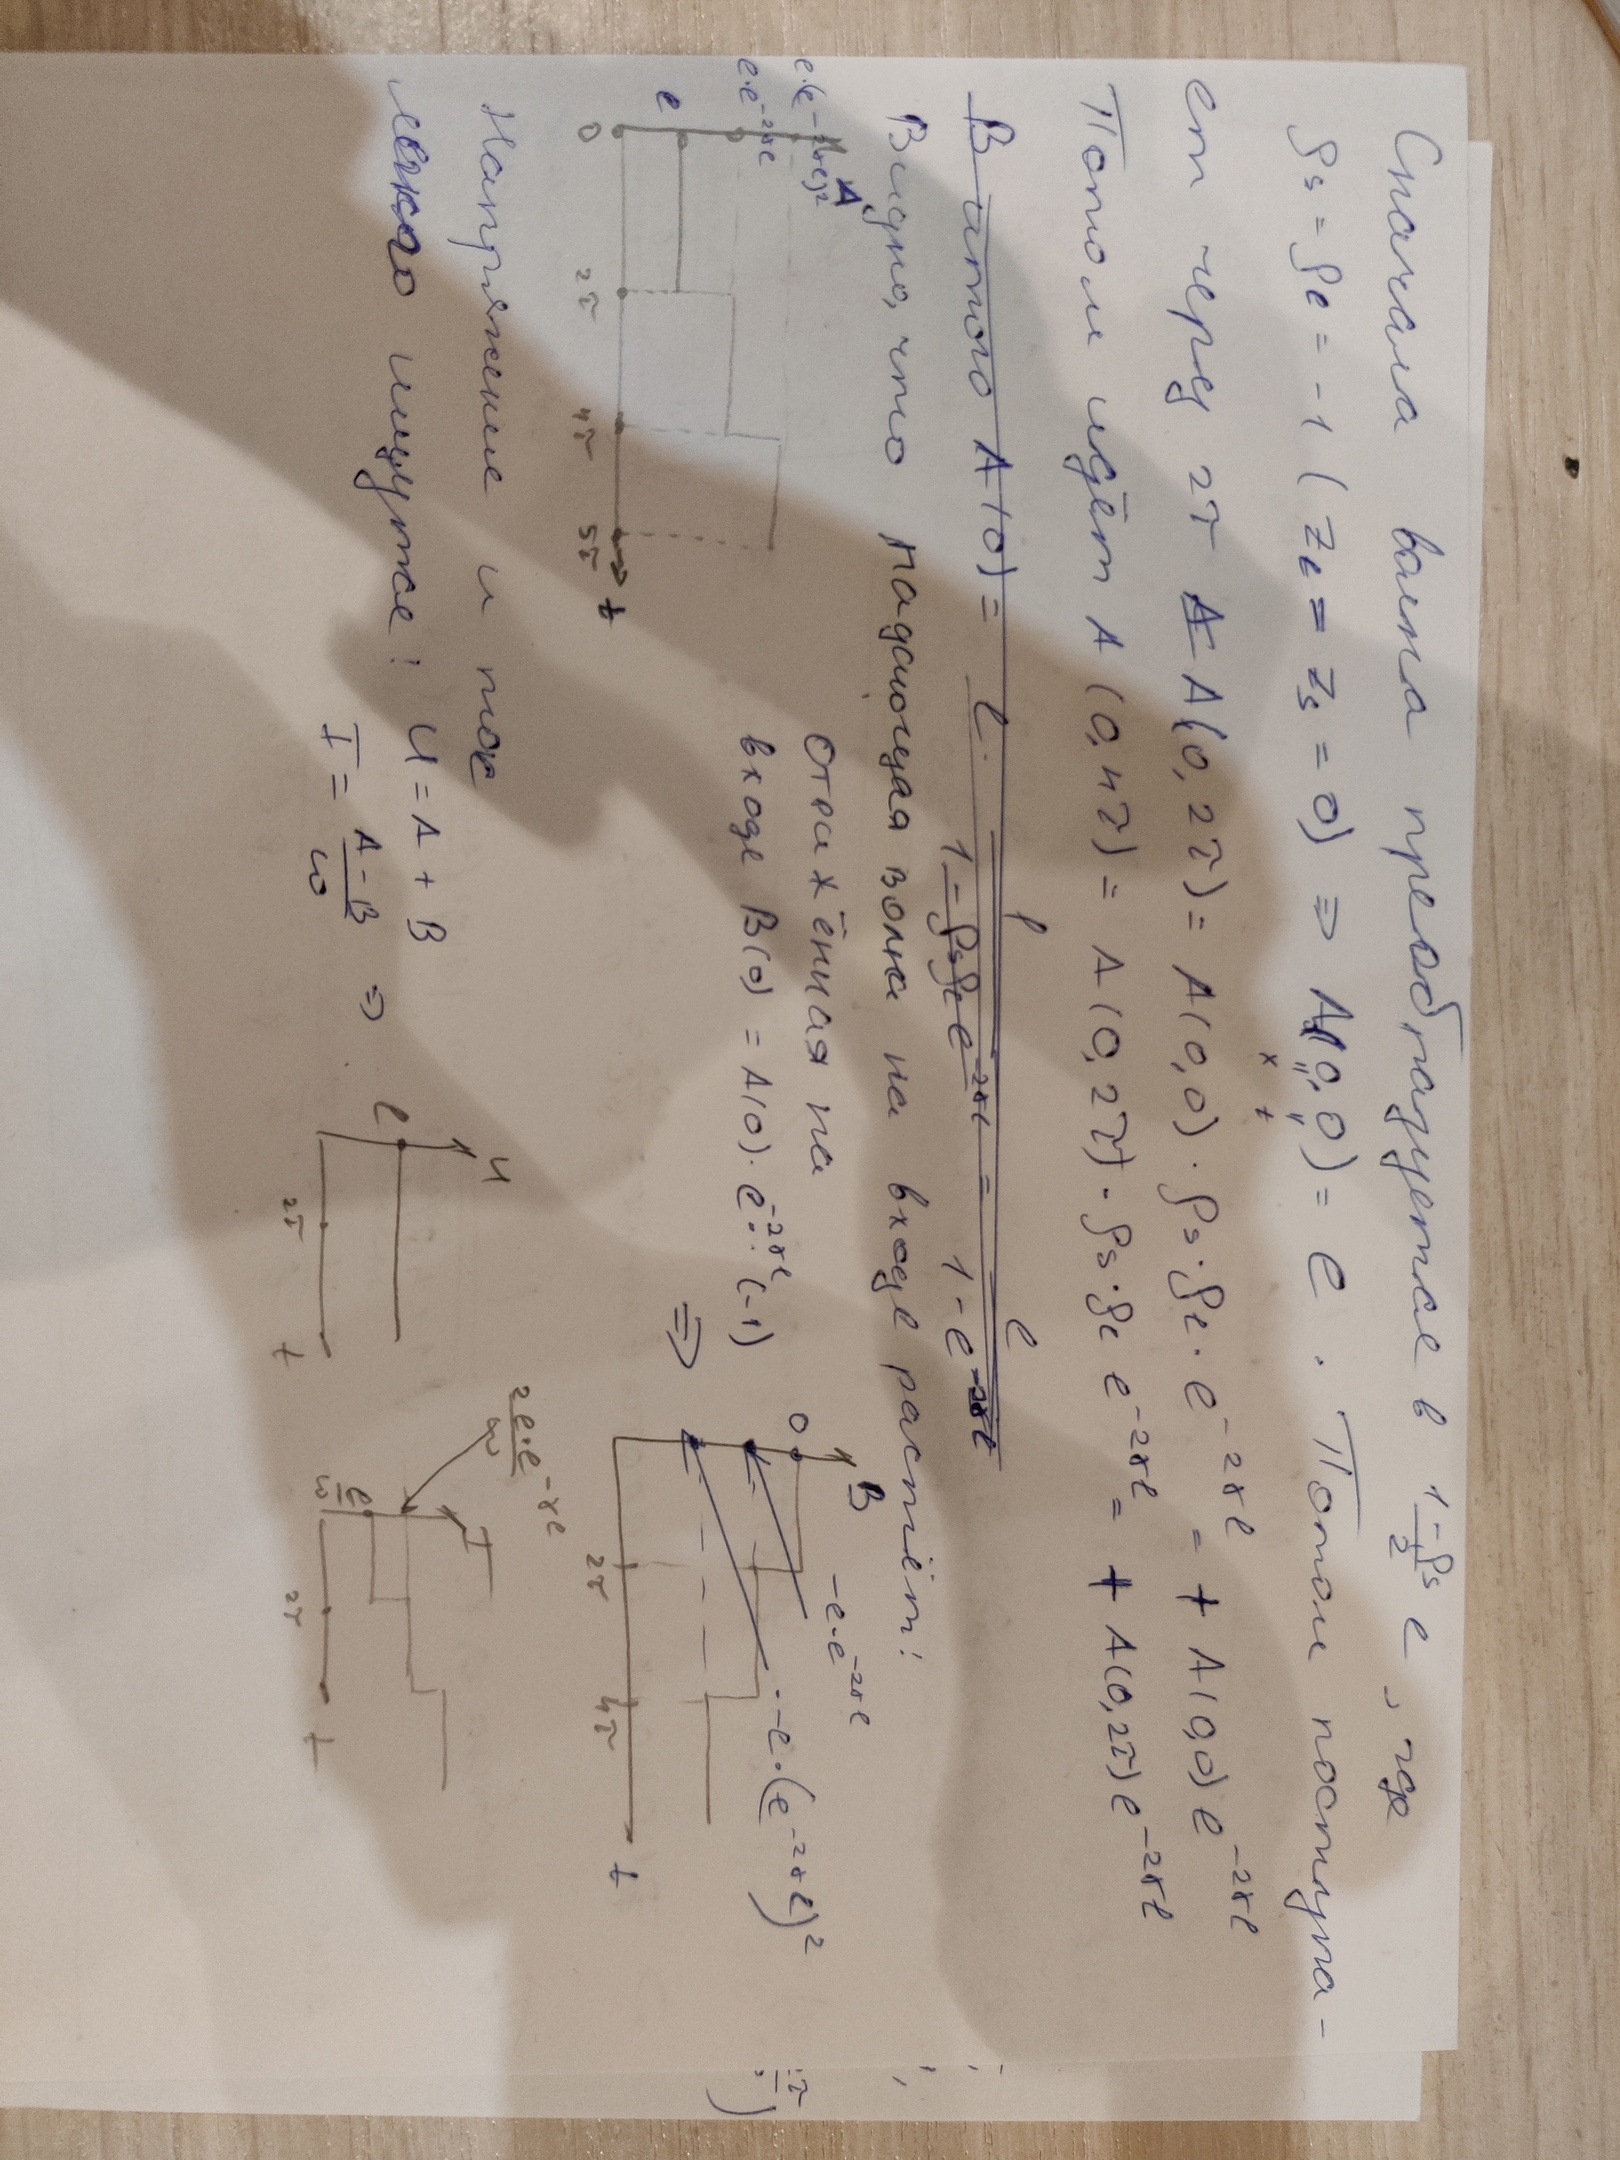 Сначала волна преобразуется в (1-ρs)/2 e, где
ρs = ρℓ = -1 (zℓ = zs = 0) ⇒ A(0,0) = e. Потом поступа-
x t
ет через 2τ A(0,2τ) = A(0,0)·ρs·ρℓ·e^{-2γℓ} = + A(0,0) e^{-2γℓ}
Потом идёт A(0,4τ) = A(0,2τ)·ρs·ρℓ e^{-2γℓ} = + A(0,2τ) e^{-2γℓ}
В итого A(0) = e/(1-ρsρℓ e^{-2γℓ}) = e/(1-e^{-2γℓ})
Видно, что падающая волна на входе растёт!
A
e·(e^{-2γℓ})²
e·e^{-2γℓ}
e
0 2τ 4τ 5τ t
отражённая на
входе B(0) = A(0)·e^{-2γℓ}·(-1)
⇒
B
0
-e·e^{-2γℓ}
-e·(e^{-2γℓ})²
2τ 4τ t
Напряжение и ток
легко ищутся: U = A + B
I = (A-B)/ω ⇒
U
e
2τ t
2e·e^{-γℓ}/ω
I
e/ω
2τ t